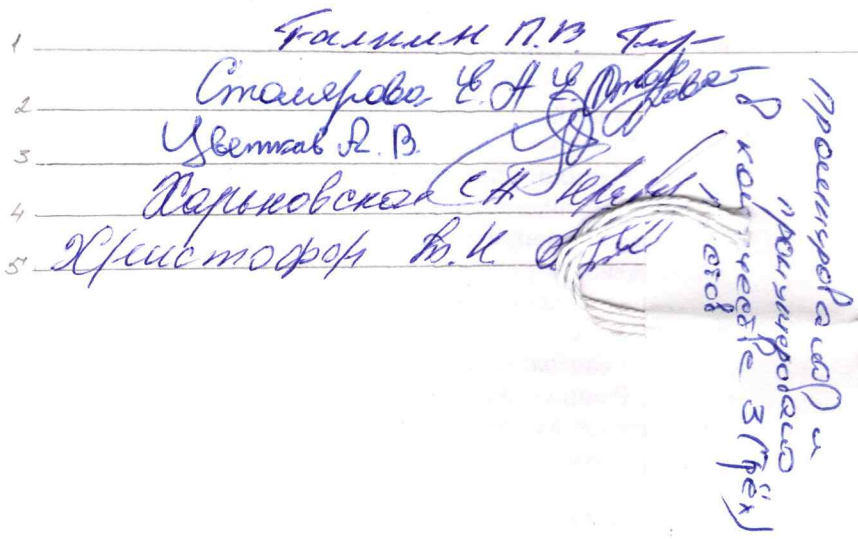 1 Галкин П.В.
2 Столярова Е.А.
3 Цветков А.В.
4 Харьковская С.А.
5 Христофор В.К.
Прошнуровано и
пронумеровано
в количестве 3 (трёх)